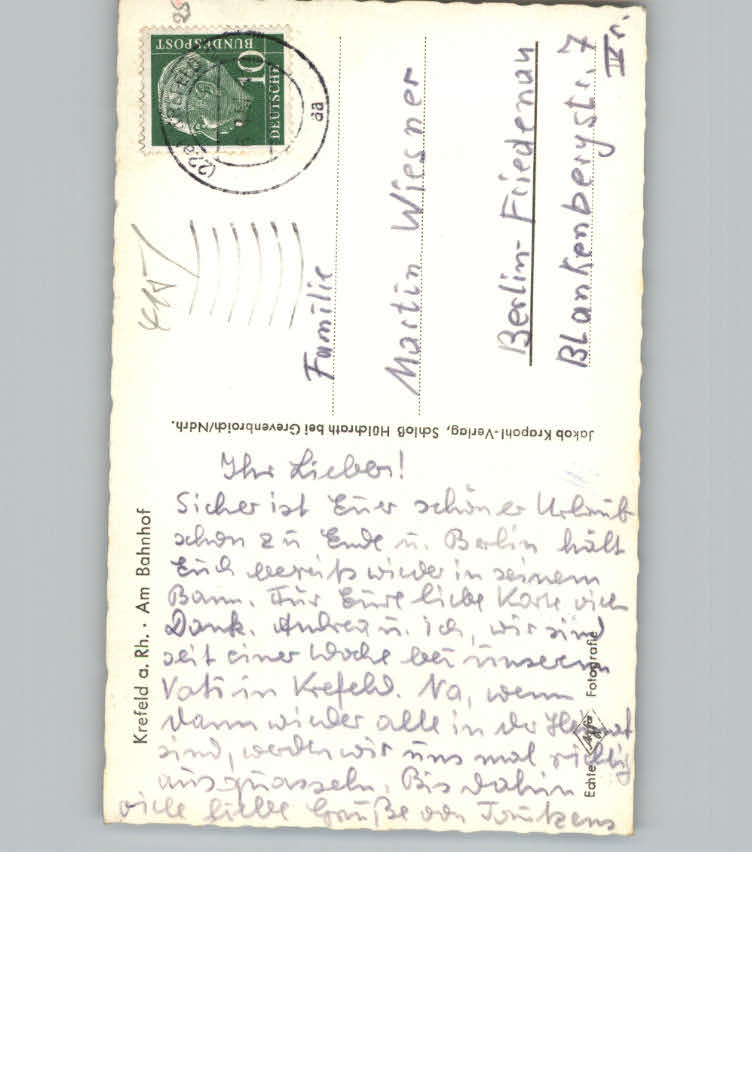 Krefeld a. Rh. · Am Bahnhof
Ihr Lieben!
Sicher ist Euer schöner Urlaub
schon zu Ende u. Berlin hält
Euch bereits wieder in seinem
Bann. Für Eure liebe Karte viel
Dank. Andrea u. ich, wir sind
seit einer Woche bei unserem
Vati in Krefeld. Na, wenn
dann wieder alle in der Heimat
sind, werden wir uns mal richtig
ausquasseln. Bis dahin
viele liebe Grüße von
Echte Agfa Fotografie
Jakob Krapohl-Verlag, Schloß Hülchrath bei Grevenbroich/Ndrh.
DEUTSCHE
BUNDESPOST
10
(22a)
aa
25
Familie
Martin Wiesner
Berlin-Friedenau
Blankenbergstr. 7
IV r.